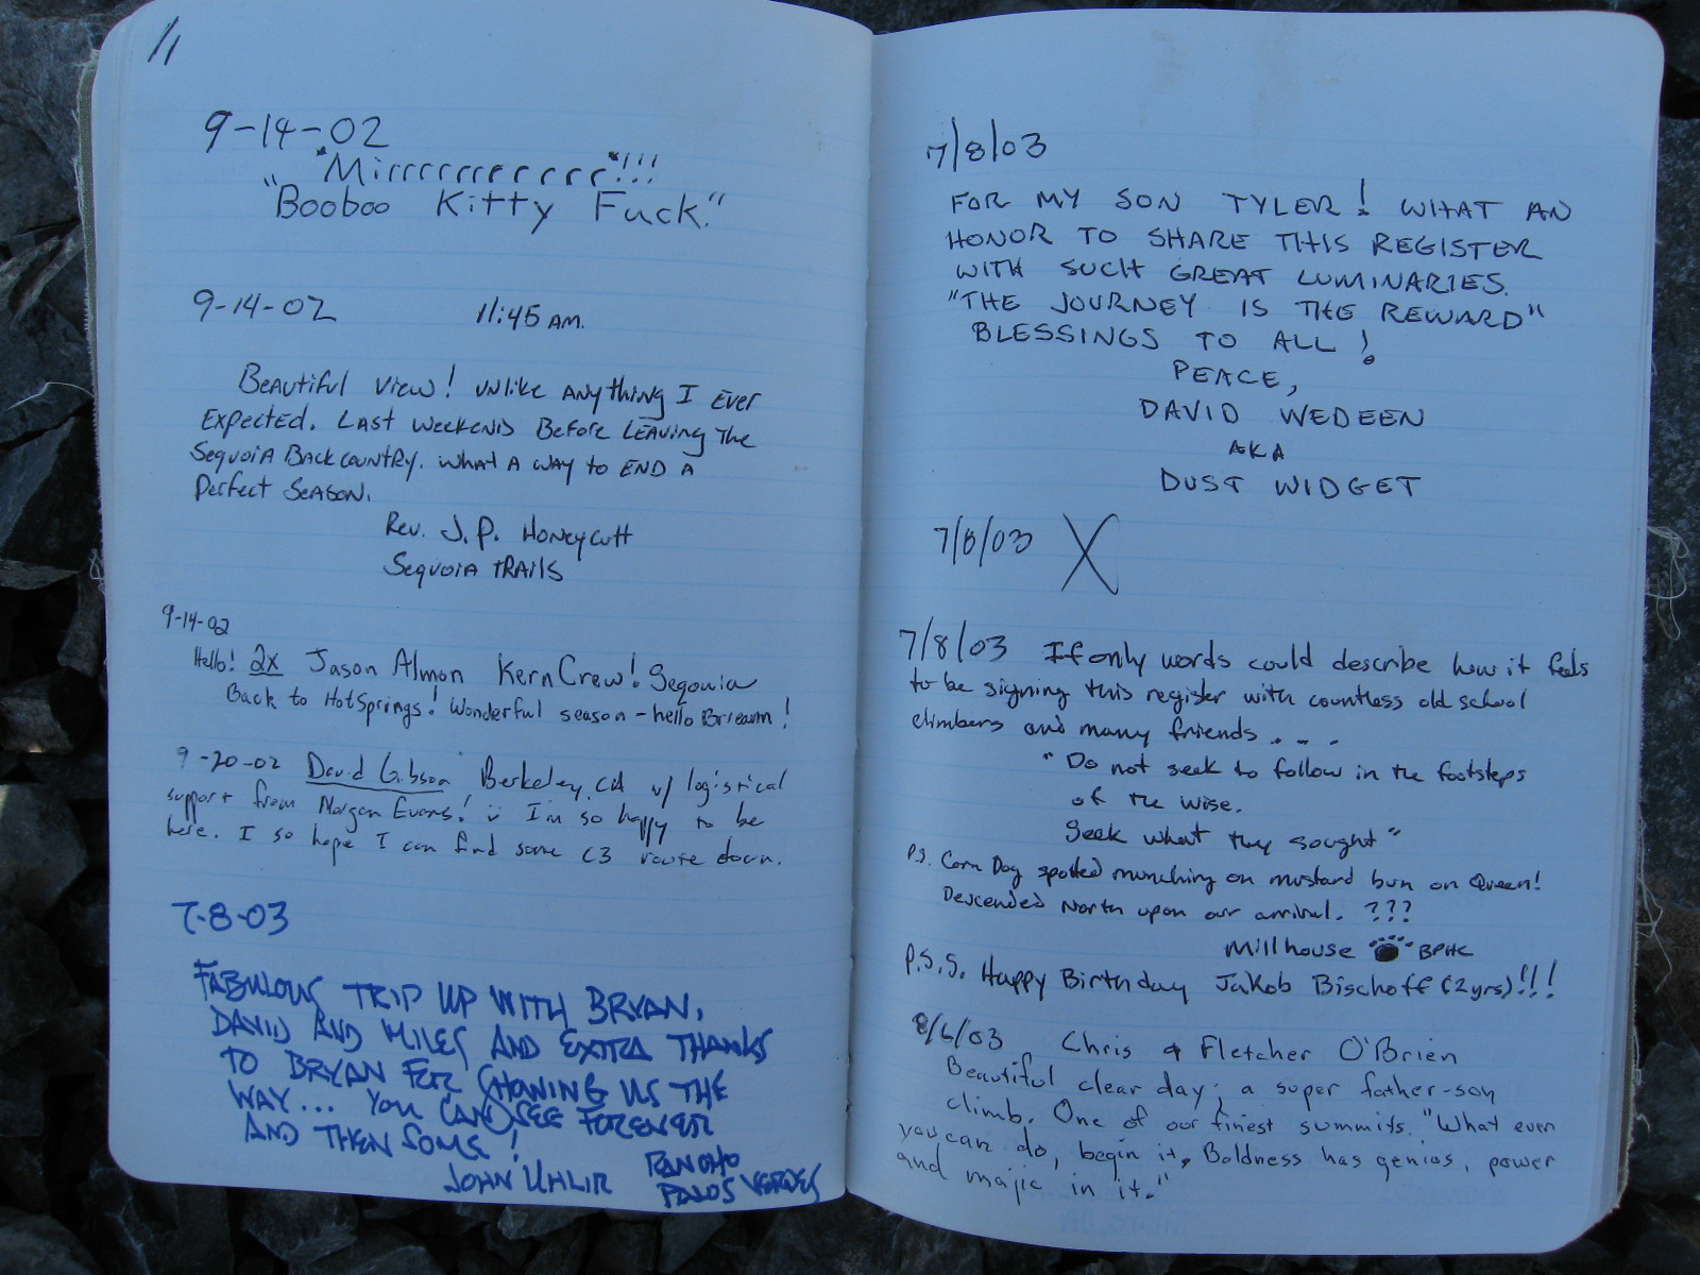 11
9-14-02
"Mirrrrrrrrrrrr"!!!
"Booboo Kitty Fuck."
9-14-02 11:45 AM.
Beautiful view! unlike anything I ever
Expected. Last weekends Before Leaving The
Sequoia Backcountry. What a way to end a
Perfect Season.
Rev. J.P. Honeycutt
Sequoia Trails
9-14-02
Hello! 2x Jason Almon Kern Crew! Seqouia
Back to HotSprings! Wonderful season - hello !
9-20-02 David Gibson Berkeley, CA w/ logistical
support from Morgan Evans! I'm so happy to be
here. I so hope I can find some C3 route down.
7-8-03
FABULOUS TRIP UP WITH BRYAN,
DAVID AND MILES AND EXTRA THANKS
TO BRYAN FOR SHOWING US THE
WAY... YOU CAN SEE FOREVER
AND THEN SOME!
JOHN UHLIR RANCHO
PALOS VERDES
7/8/03
FOR MY SON TYLER! WHAT AN
HONOR TO SHARE THIS REGISTER
WITH SUCH GREAT LUMINARIES.
"THE JOURNEY IS THE REWARD"
BLESSINGS TO ALL!
PEACE,
DAVID WEDEEN
AKA
DUST WIDGET
7/8/03 X
7/8/03 If only words could describe how it feels
to be signing this register with countless old school
climbers and many friends . . . .
"Do not seek to follow in the footsteps
of the wise.
Seek what they sought"
P.S. Corn Dog spotted munching on mustard bun on Queen!
Descended North upon our arrival. ???
Millhouse BPHC
P.S.S. Happy Birthday Jakob Bischoff (2yrs)!!!
8/6/03 Chris & Fletcher O'Brien
Beautiful clear day; a super father-son
climb. One of our finest summits. "What ever
you can do, begin it. Boldness has genios, power
and majic in it."